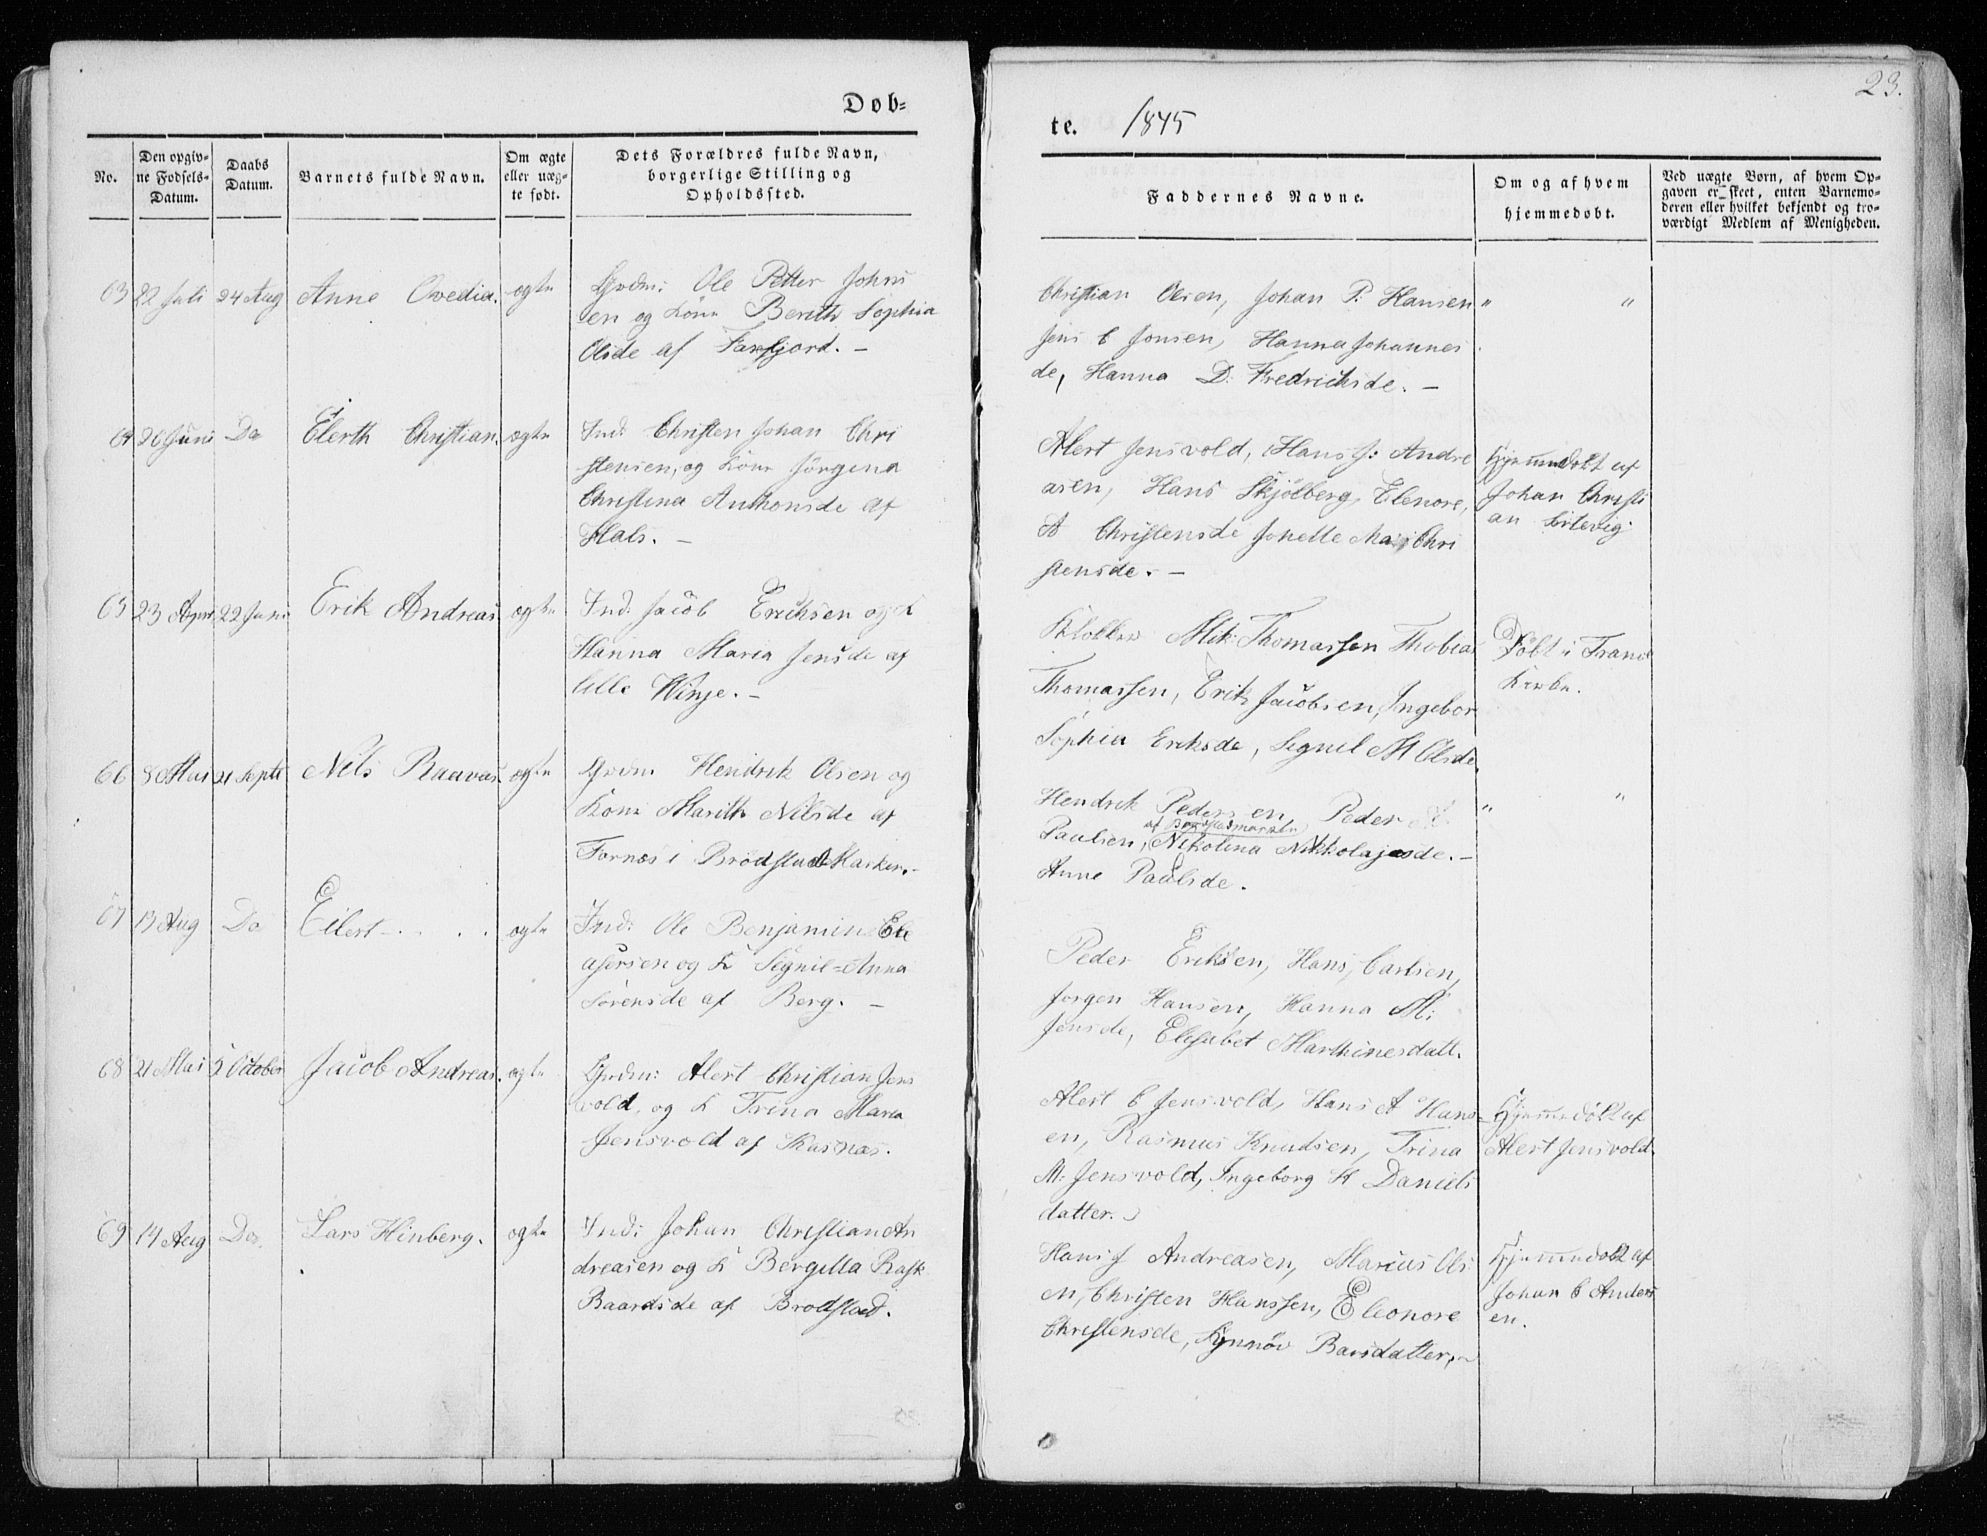 23.
Døb-
te. 1845
No.
Den opgiv-
ne Fødsels-
Datum.
Daabs
Datum.
Barnets fulde Navn.
Om ægte
eller uæg-
te født.
Dets Forældres fulde Navn,
borgerlige Stilling og
Opholdssted.
Faddernes Navne.
Om og af hvem
hjemmedøbt.
Ved uægte Børn, af hvem Op-
gaven er skeet, enten Barnemo-
deren eller hvilket bekjendt og tro-
værdigt Medlem af Menigheden.
63 22 Juli 24 Aug Anne Ovedia. ægte
Grdm: Ole Petter Johns
en og Kone Berith Sophia
Olsde af Faxfjord. -
Christian Olsen, Johan P: Hansen " "
Jens C Jonsen, Hanna Johannes
de, Hanna D. Fredrichsde. -
64 20 Juni Do Elerth Christian. ægte
Ind: Christen Johan Chri
stensen, og Kone Jørgina
Christina Anthonsde af
Hals. -
Alert Jensvold, Hans J: Andre
asen, Hans Skjølberg, Elenore,
A Christensde Johelle Ma: Chri
stensde. -
Hjemmedøbt af
Johan Christi
an
65 23 April 22 Juni Erik Andreas ægte
Ind: Jacob Erichsen og K
Hanna Maria Jensde af
lille Winje. -
Klokker Mik: Thomassen Thobias
Thomassen, Erik Jacobsen, Ingebor
Sophia Eriksde, Segnil M Olsde.
Døbt i Tranø
Kirke.
66 30 Mai 21 Septb Nils Raavas. ægte
Grdm: Hendrik Olsen og
Kone Marith Nilsde af
Fornæs i Brødstad Marken. -
Hendrik Pedersen Peder A. " "
af Brødstadmarken
Paulsen, Nikolina Nikkolajsde. -
Anne Paulsde.
67 13 Aug Do Eilert - . . . ægte
Ind: Ole Benjamin Ele
asersen og K Segnil=Anna
Sørensde af Berg. -
Peder Eriksen, Hans Carlsen,
Jørgen Hansen, Hanna M:
Jensde, Elisabet Marthinesdatt.
68 21 Mai 5 October Jacob Andreas. ægte
Grdm: Alert Christian Jens
vold, og K Trina Maria
Jensvold af Kasnæs.
Alert C Jensvold, Hans A Hans-
en, Rasmus Knudsen, Trina
M: Jensvold, Ingeborg K Daniels
datter.
Hjemmedøbt af
Alert Jensvold.
69 14 Aug Do. Lars Hinberg. ægte
Ind: Johan Christian An
dreasen og K Bergitta Rask
Baardsde af Brødstad.
Hans J Andreasen, Marius Ols
en, Christen Hanssen, Eleonore
Christensde, Synnøv Barsdatter. ~
Hjemmedøbt af
Johan C Anders
en.